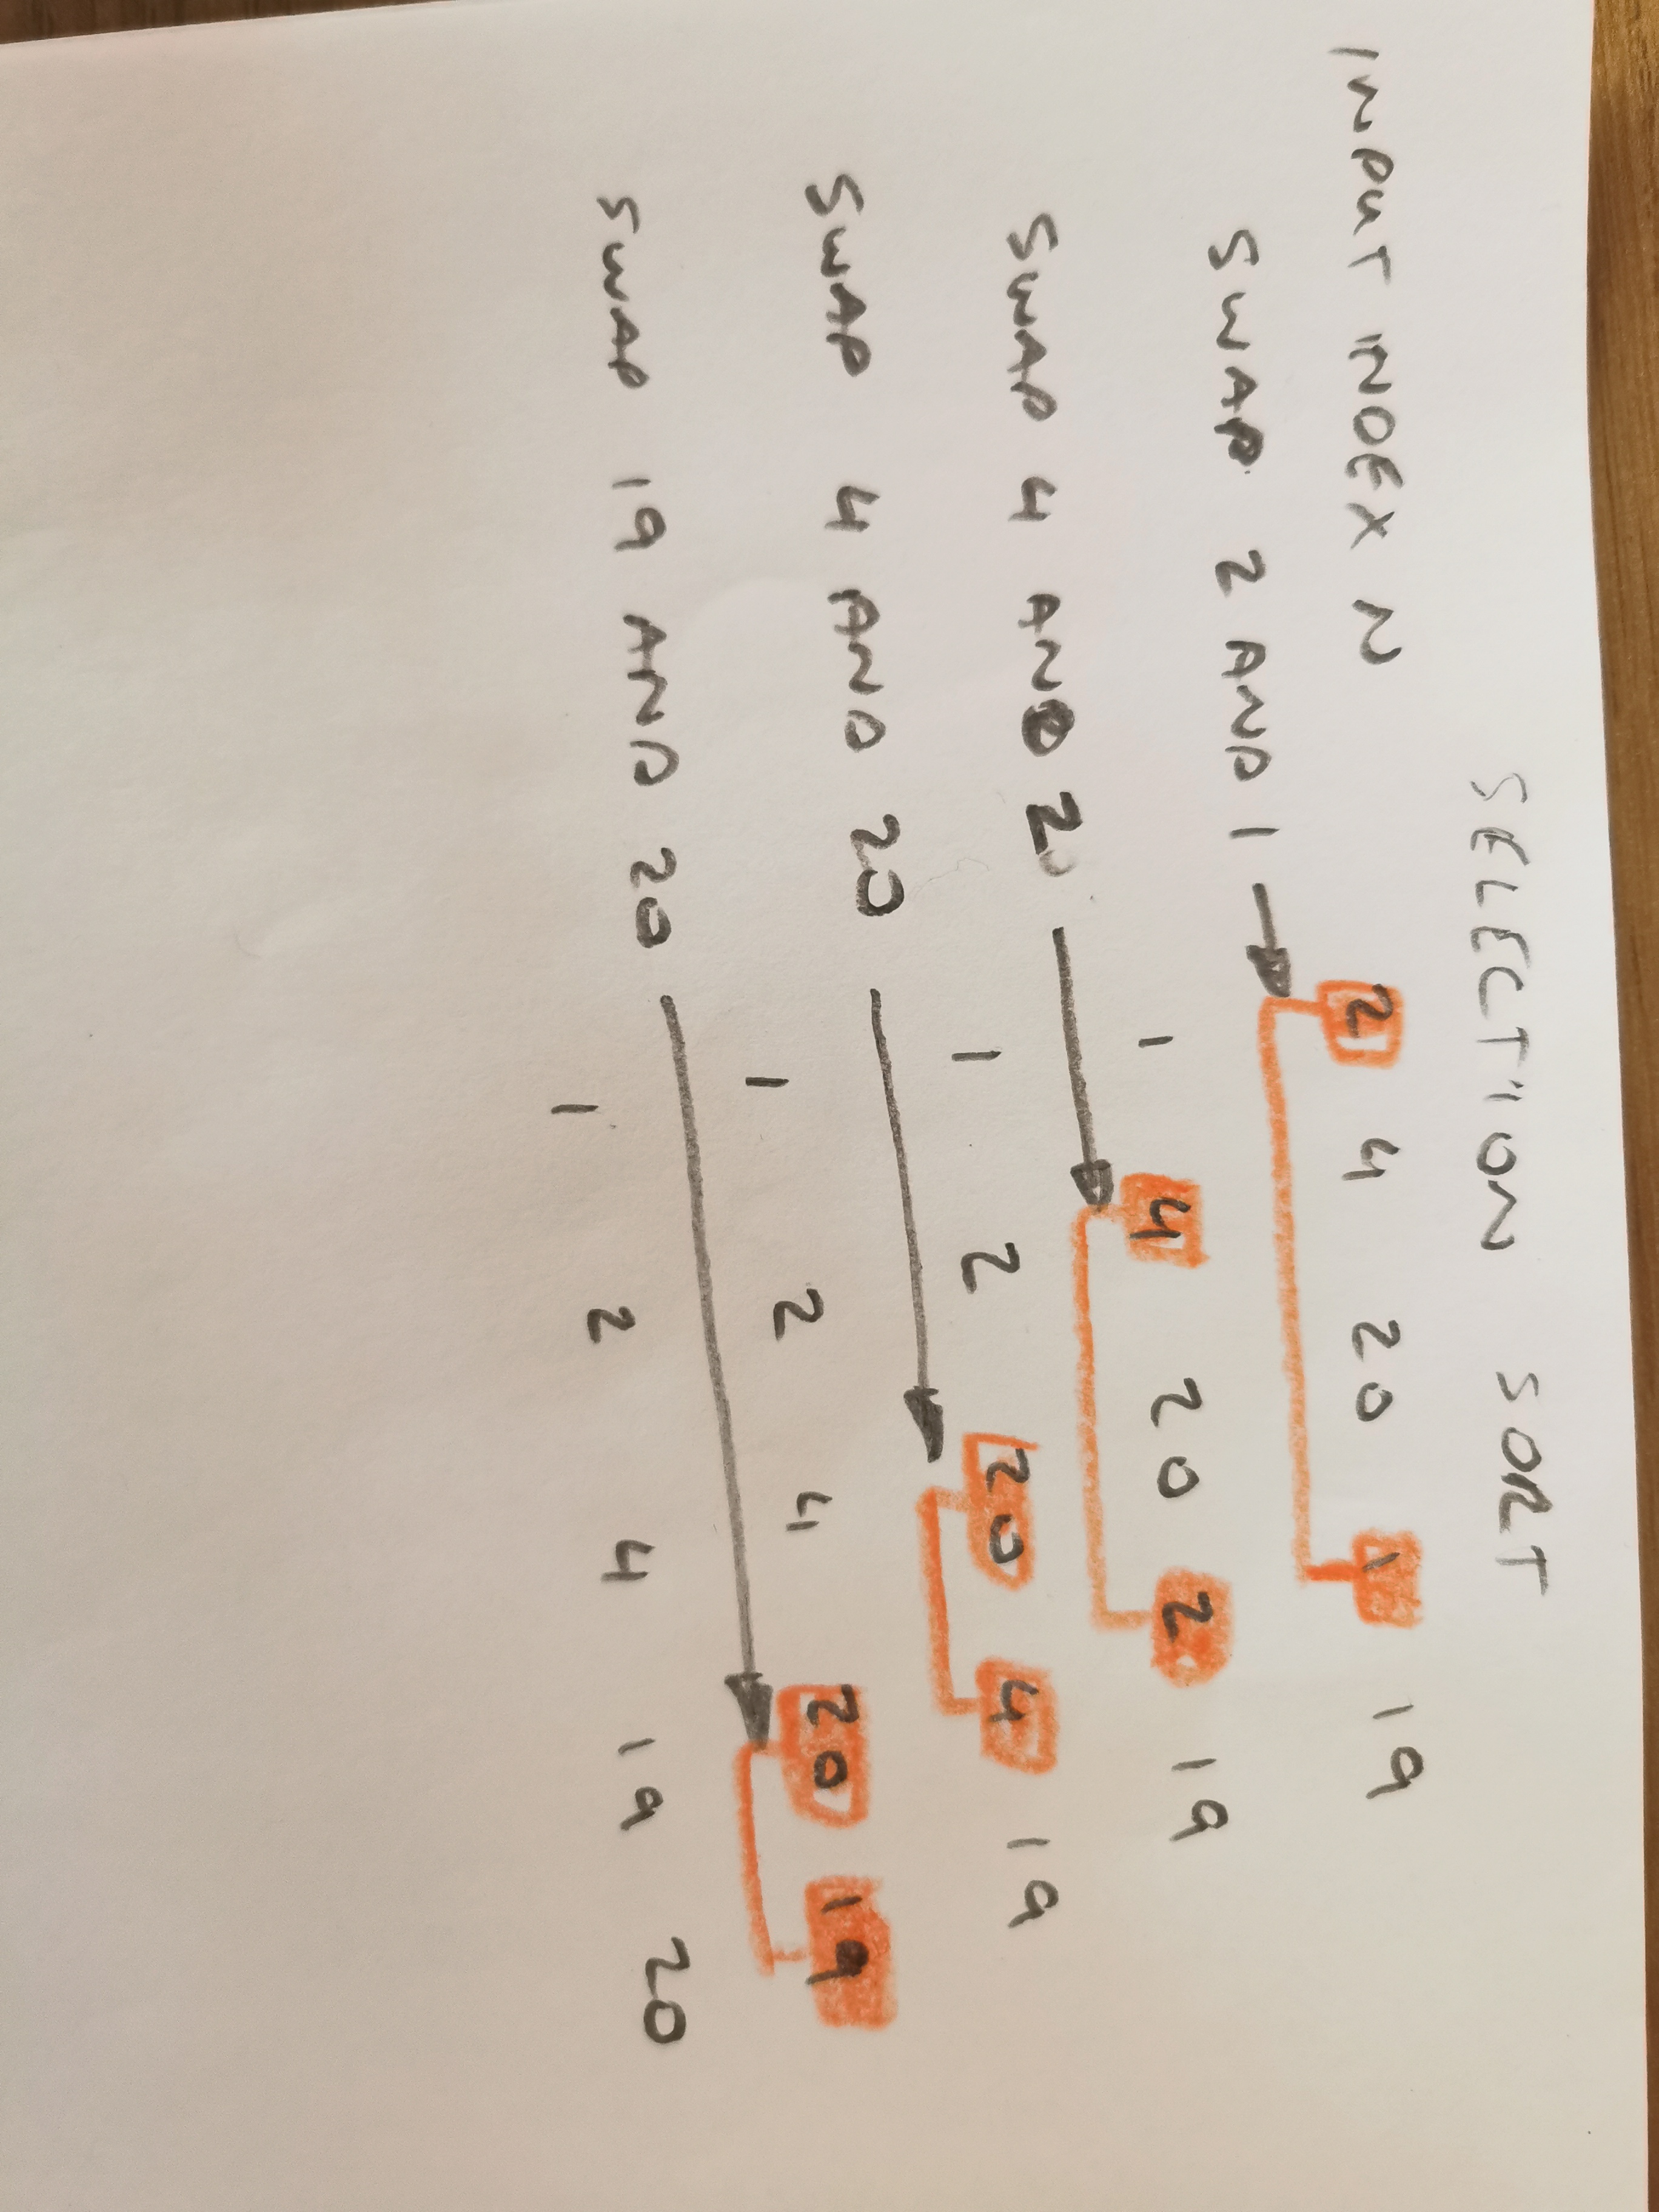 SELECTION SORT
INPUT INDEX N 2 4 20 1 19
SWAP 2 AND 1
1 4 20 2 19
SWAP 4 AND 20
1 2 20 4 19
SWAP 4 AND 20
1 2 4 20 19
SWAP 19 AND 20
1 2 4 19 20